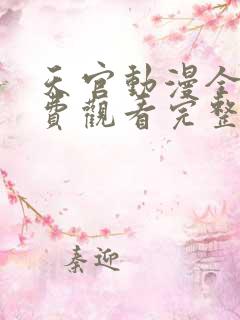 天官動漫全
費觀看完整
秦迎